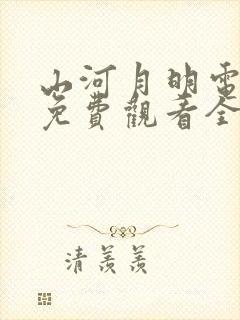 山河月明電
免費觀看全
清羨羨